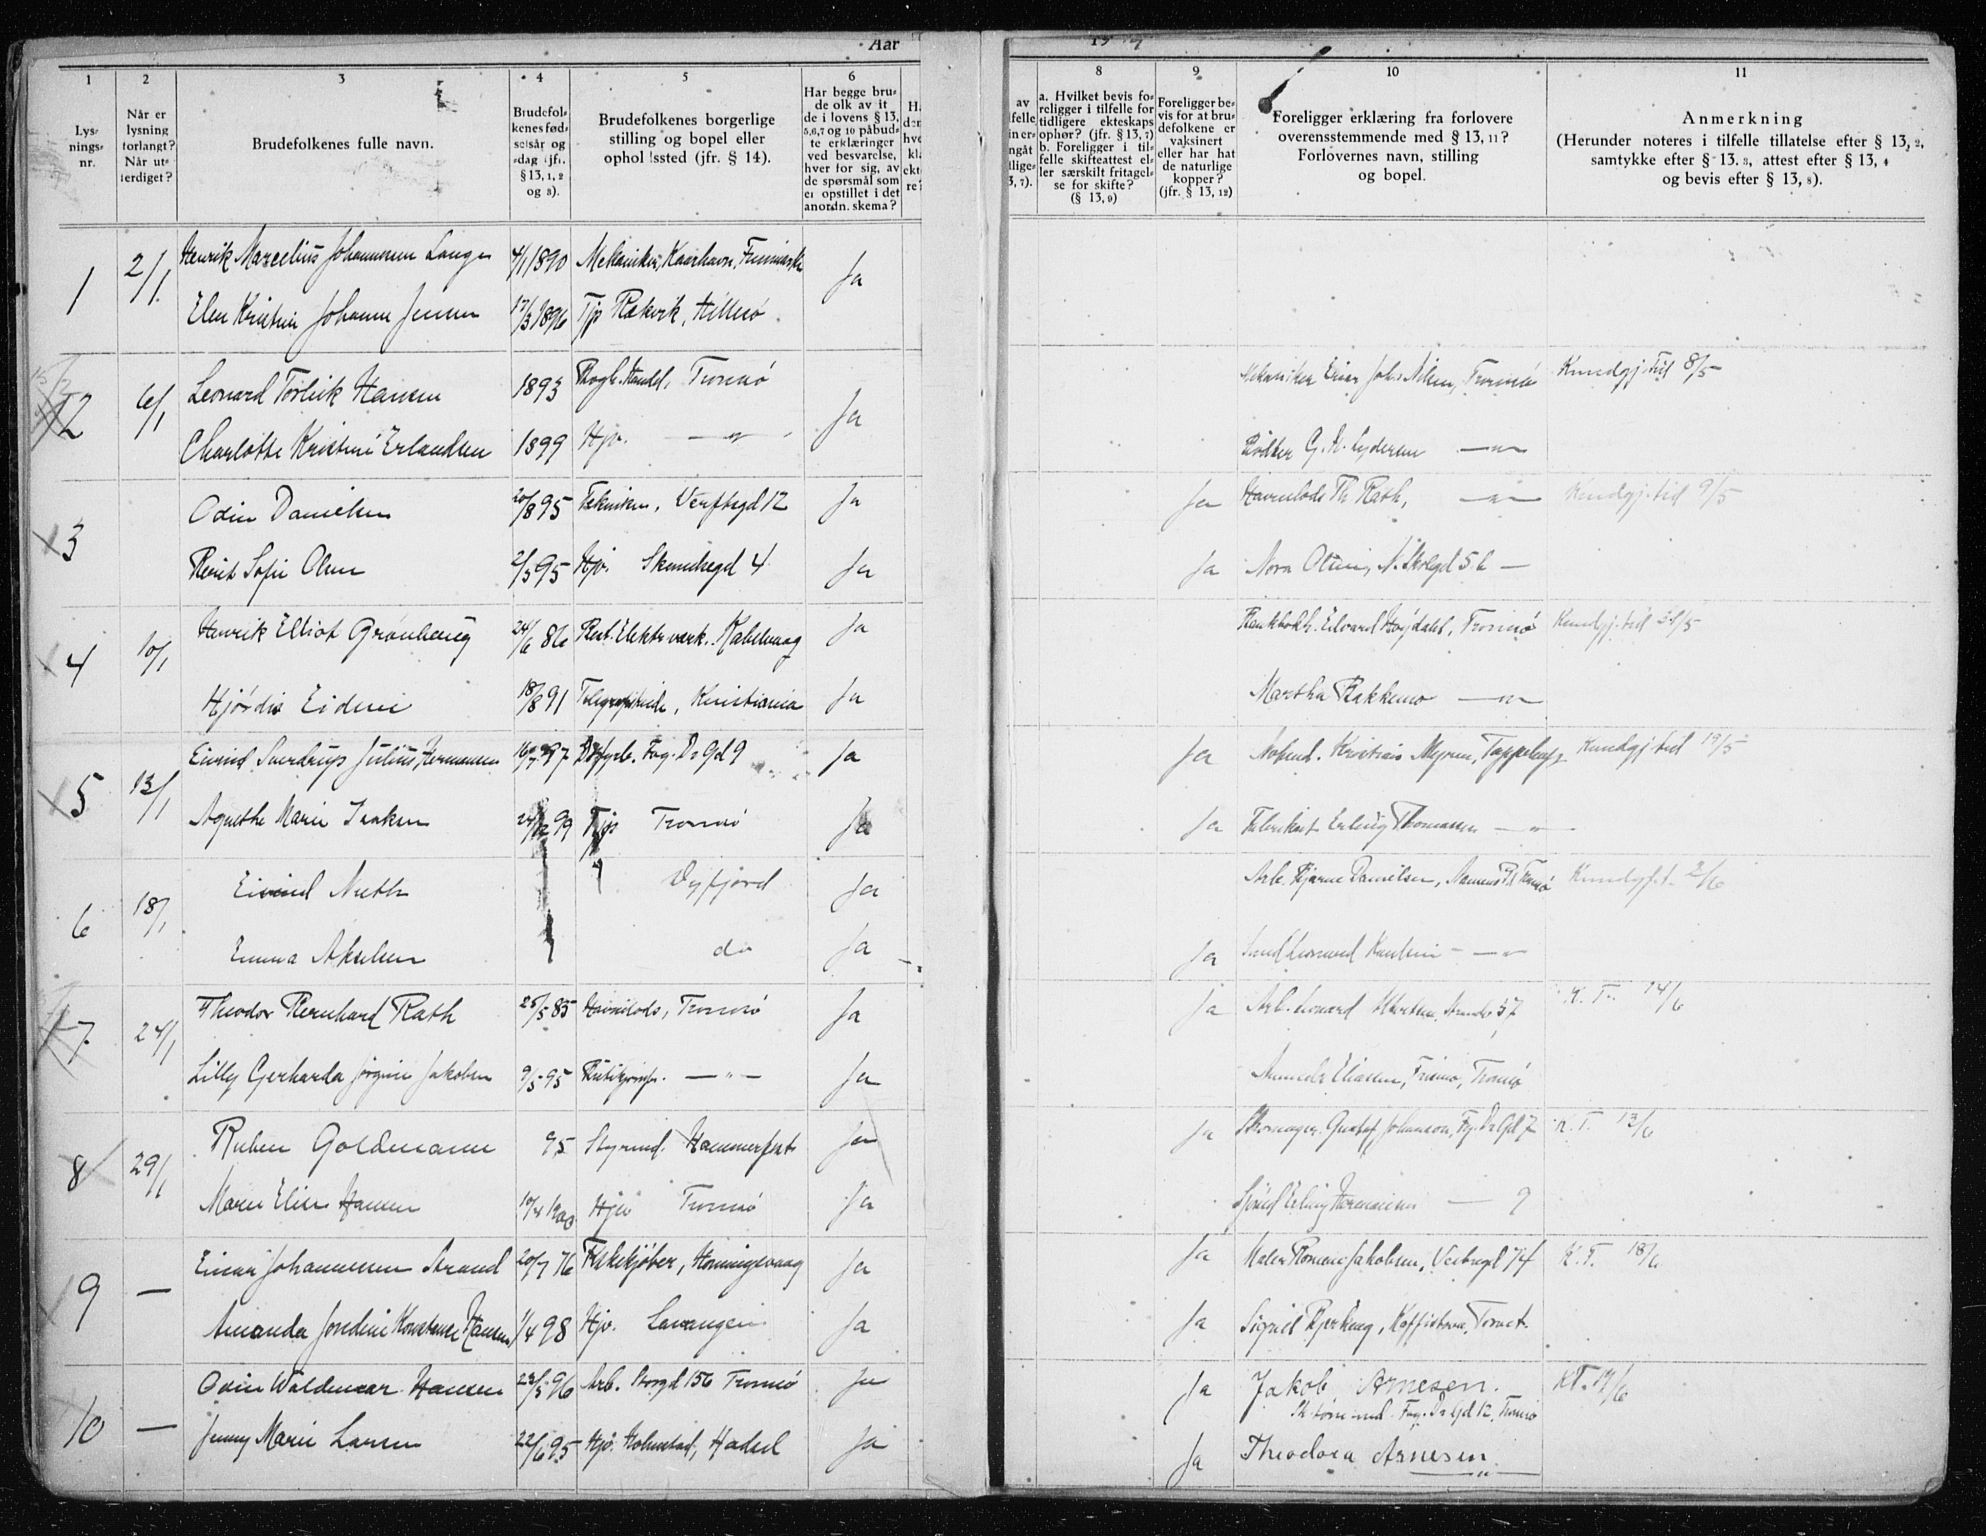 Aar
1
2
3
4
5
6
Lys-
nings-
nr.
Når er
lysning
forlangt?
Når ut-
ferdiget?
Brudefolkenes fulle navn.
Brudefol-
kenes fød-
selsår og
-dag (jfr.
§ 13, 1, 2
og 3).
Brudefolkenes borgerlige
stilling og bopel eller
opholdssted (jfr. § 14).
Har begge bru-
de olk av it
de i lovens § 13,
5,6,7 og 10 påbud-
te erklæringer
ved besvarelse,
hver for sig, av
de spørsmål som
er opstillet i det
anordn. skema?
1
2/1
Henrik Marcelius Johannesen Lange
4/1 1890
Mekaniker, Kaarhavn, Finmarken
Ja
Elen Kristine Johanne Jensen
17/3 1896
Tjp Bakvik, Hillesø
2
6/1
Leonard Torleik Hansen
1893
Handel, Tromsø
Ja
Charlotte Kristine Erlandsen
1899
Hjv. —"—
3
Odin Danielsen
20/8 95
Tekniker, Verftsgd 12
Ja
Berit Sofie Olsen
2/5 95
Hjv. Skansegd 4
Ja
4
10/1
Henrik Elliot Grønhaug
24/6 86
Best. Elektr. værk. Kabelvaag
Ja
Hjørdis Eidene
18/8 91
Telegrafistinde, Kristiania
Ja
5
13/1
Eivind Sverdrup Julius Hermansen
16/7 97
Fog. Dr Gd 9
Ja
Agnethe Marie Isaksen
24/12 99
Tjp Tromsø
Ja
6
18/1
Eivind Nuth
Dyfjord
Ja
Emma Akselsen
do
Ja
7
24/1
Theodor Bernhard Rath
25/5 85
Havnelods, Tromsø
Ja
Lilly Gerharda Jørgine Jakobsen
9/5 95
Butikjomfr. —"—
Ja
8
29/1
Ruben Goldmann
95
Styrmd. Hammerfest
Ja
Marie Elise Hansen
10/4 1900
Hjv Tromsø
Ja
9
—
Einar Johannesen Strand
20/7 76
Fiskekjøber, Honningsvaag
Ja
Amanda Josefine Konstanse Hansen
1/4 98
Hjv. Lavangen
Ja
10
—
Odin Waldemar Hansen
23/5 96
Arb. Storgd 156 Tromsø
Ja
Jenny Marie Larsen
22/6 95
Hjv. Holmstad, Hadsel
Ja
19
8
9
10
11
a. Hvilket bevis fo-
religger i tilfelle for
tidligere ekteskaps
ophør? (jfr. § 13, 7)
b. Foreligger i til-
felle skifteattest el-
ler særskilt fritagel-
se for skifte?
(§ 13, 9)
Foreligger be-
vis for at bru-
defolkene er
vaksinert
eller har hat
de naturlige
kopper?
(jfr. § 13, 12)
Foreligger erklæring fra forlovere
overensstemmende med § 13, 11?
Forlovernes navn, stilling
og bopel.
Anmerkning
(Herunder noteres i tilfelle tillatelse efter § 13, 2,
samtykke efter § 13. 3, attest efter § 13, 4
og bevis efter § 13, 8).
Mekaniker Einar Johs Nilsen, Tromsø
Kundgj. tid 8/5
Rødker G. A. Lydersen —"—
Ja
Havnelods Th Rath, —"—
Kundgj. tid 9/5
Ja
Nora Olsen, N. Skolegd 5 b —
Bankbokh. Edvard Høydahl, Tromsø
Kundgj. tid
Martha Bakkemo —"—
Ja
Kristian Myren,
Kundgj. tid 19/5
Ja
Fabrikarb Erling Thomassen —"—
Arb. Bjarne Danielsen, Tromsø
Kundgj.t. 2/6
Ja
—"—
Ja
Arb. Leonard Martens. Strandv 37
K. T. 14/6
Eliasen, Tromsø
Ja
Skomager. Gustaf Johansson, Fg. Dr Gd 7
K. T. 13/6
Sjømd Erling Hermansen — 9
Ja
Maler Jakobsen, Verftsgd 74
K. T. 18/6
Ja
Sigrid Bjerkeng, Kaffistova, Torvet
Ja
Jakob Arnesen.
KT. 19/6
Fog. Dr Gd 12, Tromsø
Ja
Theodora Arnesen
—"—